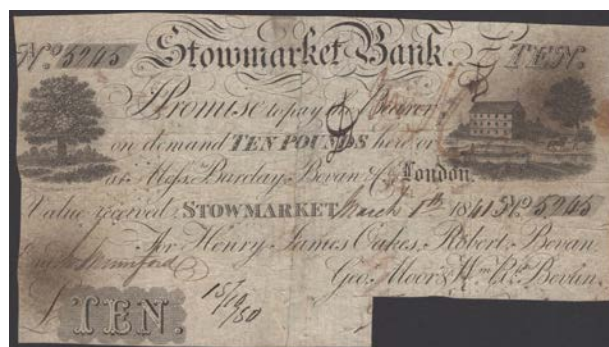 No 5945 Stowmarket Bank. £ TEN.
I Promise to pay the Bearer
on demand TEN POUNDS here or
at Messrs. Barclay, Bevan & Co. London.
Value received STOWMARKET March 1st 1841 No 5945
For Henry James Oakes, Robert Bevan
Geo. Moor & Wm. Bevan.
Mumford
TEN.
15/10/50